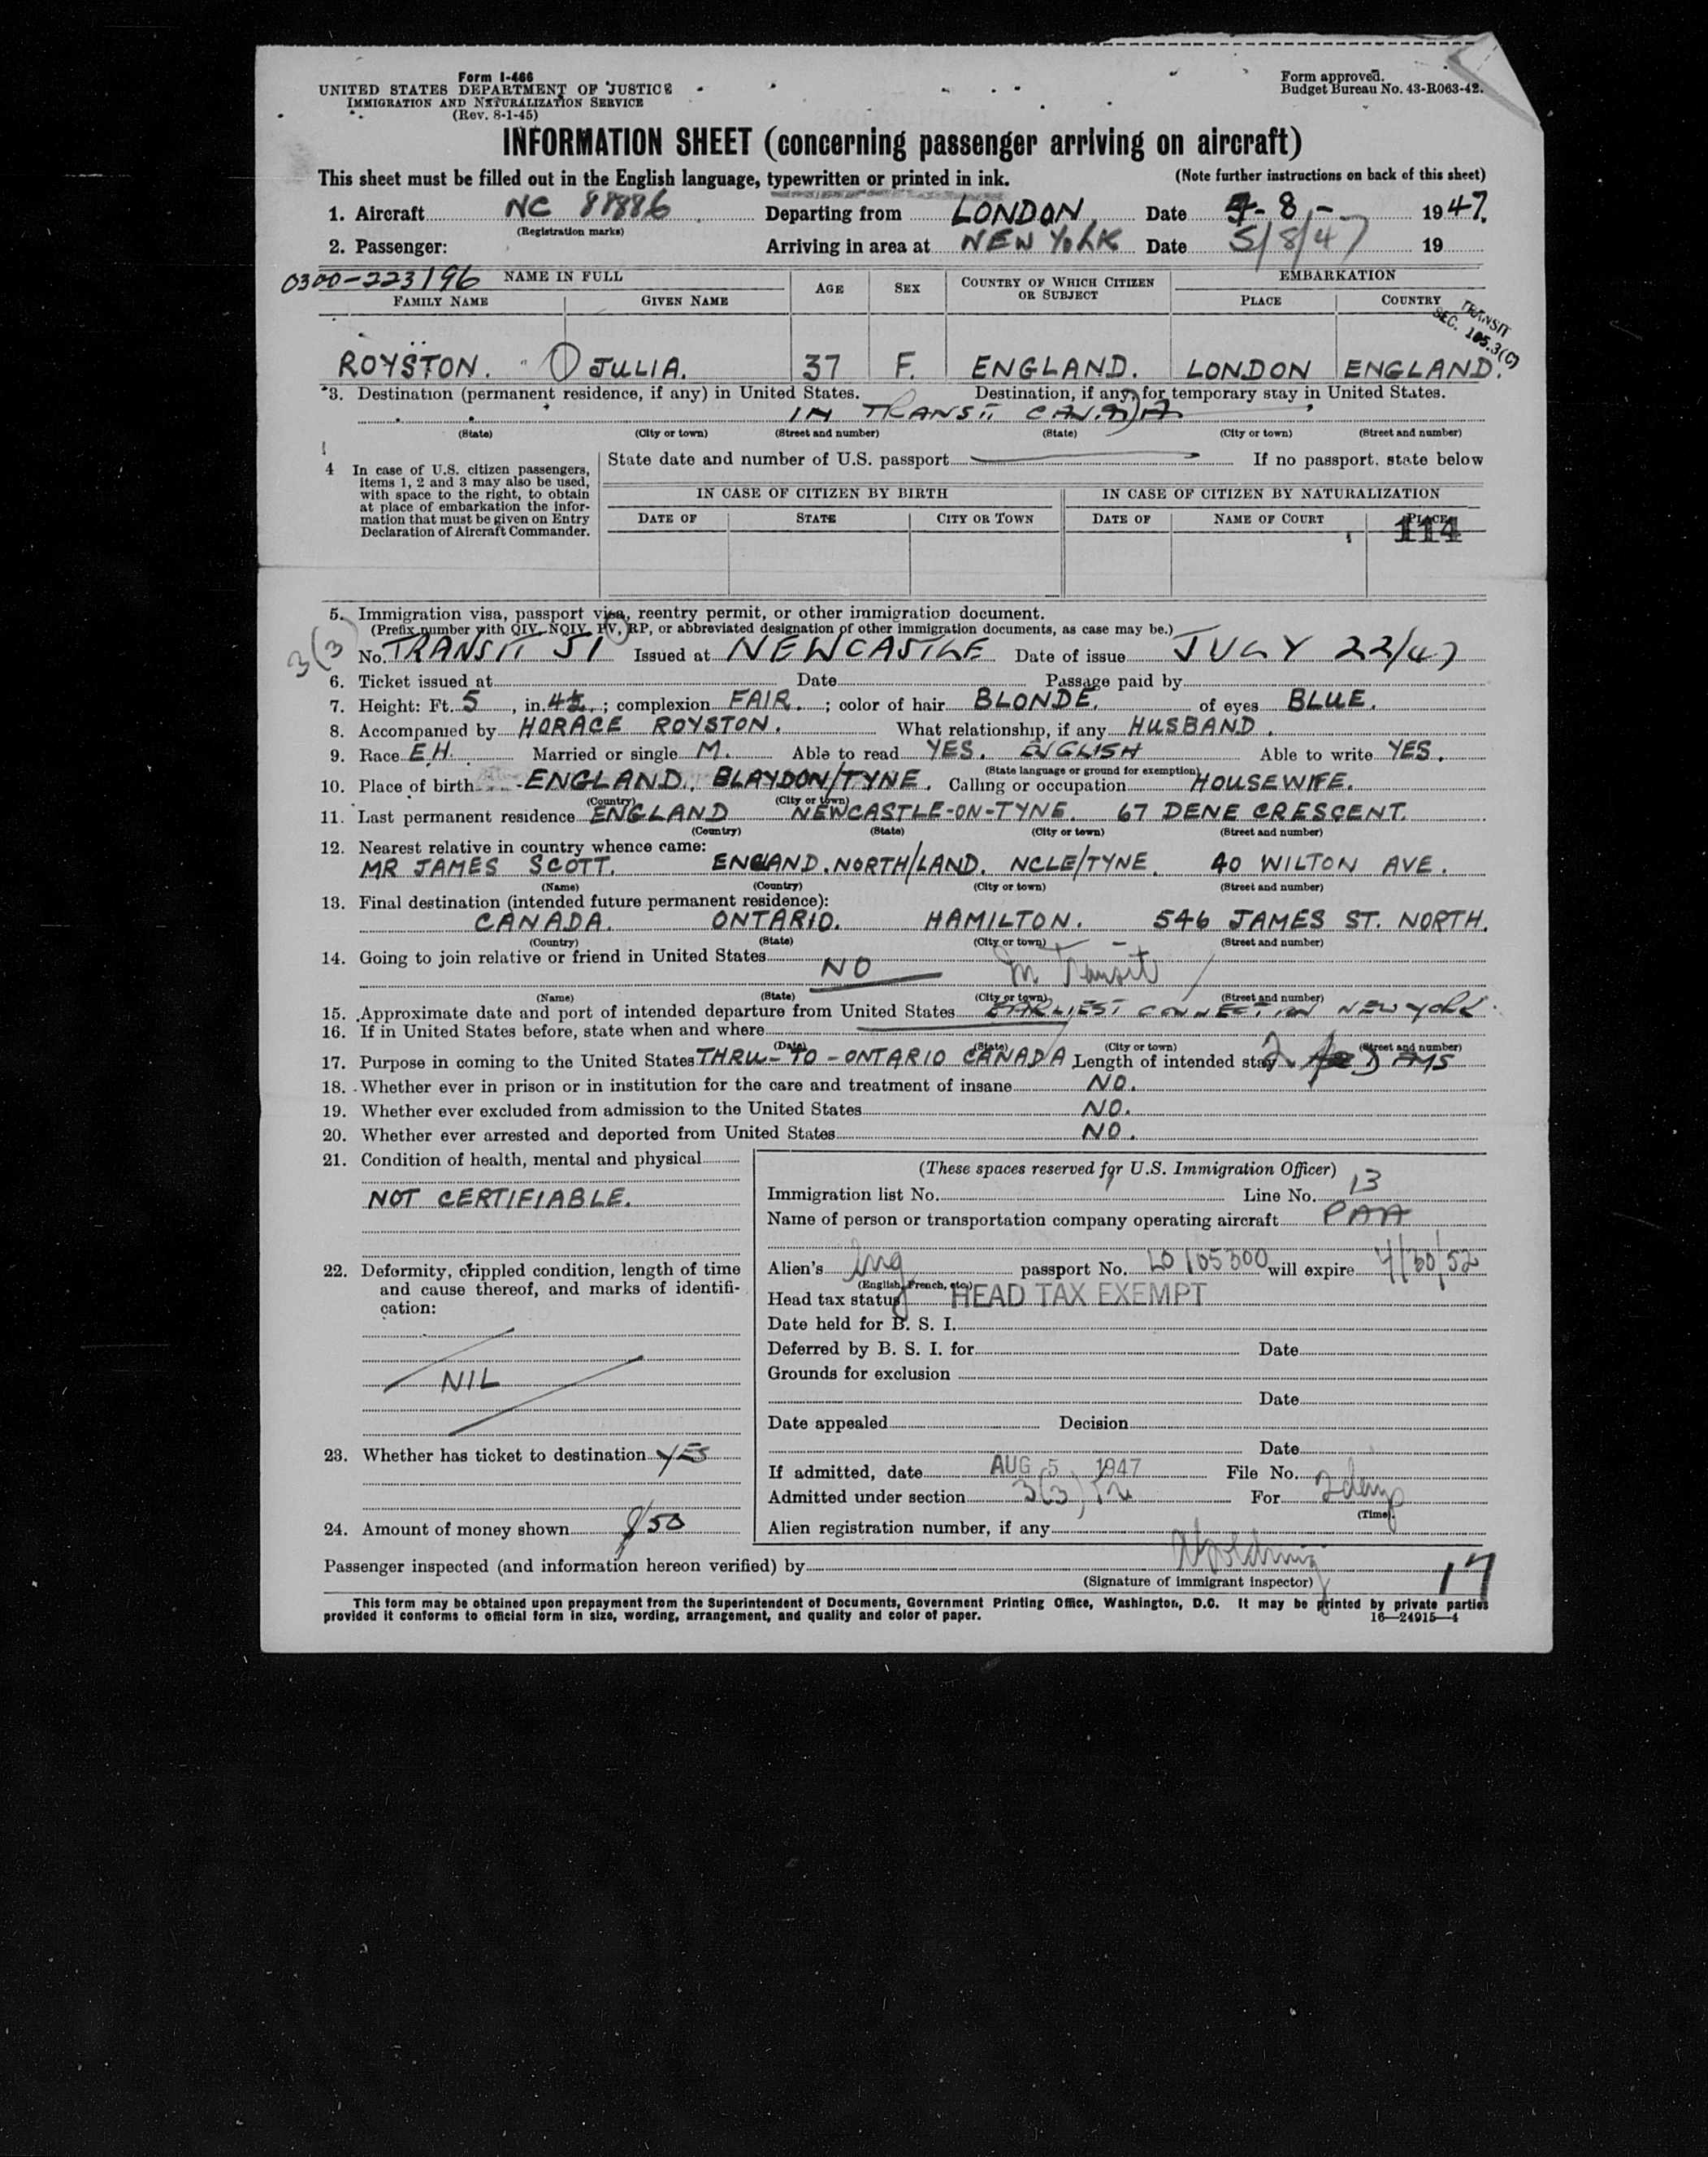 Form I-466
UNITED STATES DEPARTMENT OF JUSTICE
IMMIGRATION AND NATURALIZATION SERVICE
(Rev. 8-1-45)
Form approved.
Budget Bureau No. 43-R063-42.
INFORMATION SHEET (concerning passenger arriving on aircraft)
This sheet must be filled out in the English language, typewritten or printed in ink. (Note further instructions on back of this sheet)
1. Aircraft NC 88886 Departing from LONDON, Date 4-8- 1947.
(Registration marks)
2. Passenger: Arriving in area at NEW YORK Date 5/8/47 19
0300-223196 NAME IN FULL AGE SEX COUNTRY OF WHICH CITIZEN OR SUBJECT EMBARKATION
FAMILY NAME GIVEN NAME PLACE COUNTRY
TRANSIT
SEC. 105.3(C)
ROYSTON. JULIA. 37 F. ENGLAND. LONDON ENGLAND.
*3. Destination (permanent residence, if any) in United States. Destination, if any, for temporary stay in United States.
IN TRANSIT CANADA
(State) (City or town) (Street and number) (State) (City or town) (Street and number)
4 In case of U.S. citizen passengers, items 1, 2 and 3 may also be used, with space to the right, to obtain at place of embarkation the information that must be given on Entry Declaration of Aircraft Commander.
State date and number of U.S. passport If no passport, state below
IN CASE OF CITIZEN BY BIRTH IN CASE OF CITIZEN BY NATURALIZATION
DATE OF STATE CITY OR TOWN DATE OF NAME OF COURT PLACE
114
5. Immigration visa, passport visa, reentry permit, or other immigration document.
(Prefix number with QIV, NQIV, PV, RP, or abbreviated designation of other immigration documents, as case may be.)
3(3
No. TRANSIT 51 Issued at NEWCASTLE Date of issue JULY 22/47
6. Ticket issued at Date Passage paid by
7. Height: Ft. 5, in. 4½.; complexion FAIR.; color of hair BLONDE. of eyes BLUE.
8. Accompanied by HORACE ROYSTON. What relationship, if any HUSBAND.
9. Race E.H. Married or single M. Able to read YES. ENGLISH Able to write YES.
(State language or ground for exemption)
10. Place of birth ENGLAND. BLAYDON/TYNE. Calling or occupation HOUSEWIFE.
(Country) (City or town)
11. Last permanent residence ENGLAND NEWCASTLE-ON-TYNE. 67 DENE CRESCENT.
(Country) (State) (City or town) (Street and number)
12. Nearest relative in country whence came:
MR JAMES SCOTT. ENGLAND. NORTH/LAND. NCLE/TYNE. 40 WILTON AVE.
(Name) (Country) (City or town) (Street and number)
13. Final destination (intended future permanent residence):
CANADA. ONTARIO. HAMILTON. 546 JAMES ST. NORTH.
(Country) (State) (City or town) (Street and number)
14. Going to join relative or friend in United States
NO In Transit
(Name) (State) (City or town) (Street and number)
15. Approximate date and port of intended departure from United States EARLIEST CONNECTION NEW YORK
16. If in United States before, state when and where
(Date) (State) (City or town) (Street and number)
17. Purpose in coming to the United States THRU-TO-ONTARIO CANADA Length of intended stay 2 DAYS
18. Whether ever in prison or in institution for the care and treatment of insane NO.
19. Whether ever excluded from admission to the United States NO.
20. Whether ever arrested and deported from United States NO.
21. Condition of health, mental and physical
NOT CERTIFIABLE.
22. Deformity, crippled condition, length of time and cause thereof, and marks of identification:
NIL
23. Whether has ticket to destination YES
24. Amount of money shown $50
(These spaces reserved for U.S. Immigration Officer)
Immigration list No. Line No. 13
Name of person or transportation company operating aircraft PAA
Alien's Eng passport No. LO 105300 will expire 4/30/52
(English, French, etc.)
Head tax status HEAD TAX EXEMPT
Date held for B. S. I.
Deferred by B. S. I. for Date
Grounds for exclusion
Date
Date appealed Decision
Date
If admitted, date AUG 5 1947 File No.
Admitted under section 3(3) For 2 days
(Time)
Alien registration number, if any
Passenger inspected (and information hereon verified) by
(Signature of immigrant inspector) 17
This form may be obtained upon prepayment from the Superintendent of Documents, Government Printing Office, Washington, D.C. It may be printed by private parties
provided it conforms to official form in size, wording, arrangement, and quality and color of paper. 16—24915—4